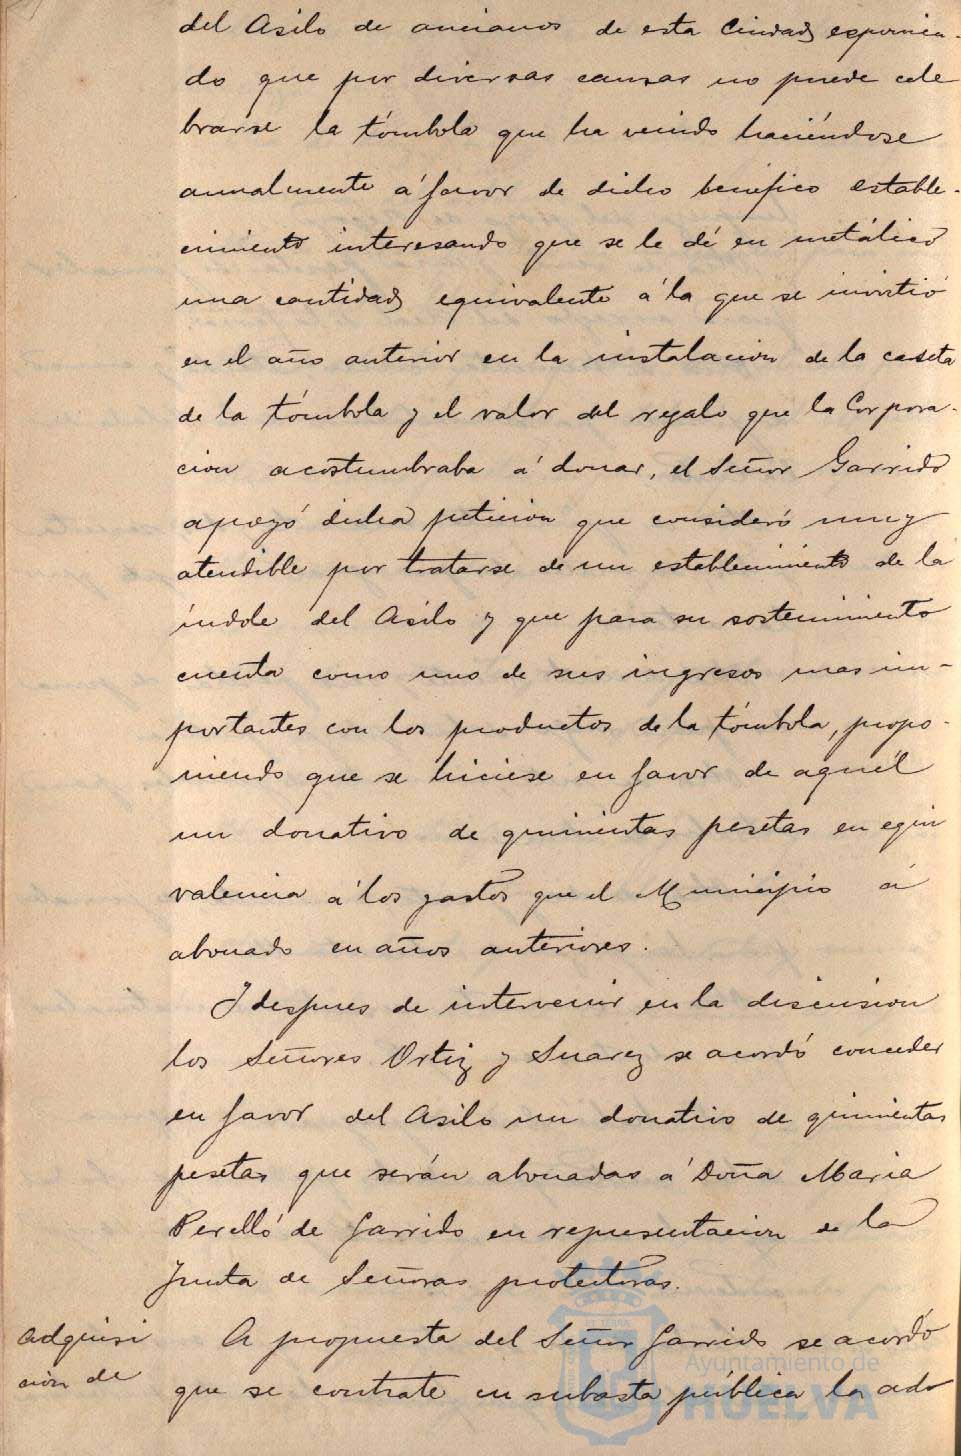 del Asilo de ancianos de esta Ciudad exponien-
do que por diversas causas no puede cele
brarse la tómbola que ha venido haciéndose
anualmente á favor de dicho benéfico estable-
cimiento interesando que se le dé en metálico
una cantidad equivalente á la que se invirtió
en el año anterior en la instalacion de la caseta
de la tómbola y el valor del regalo que la Corpora-
cion acostumbraba á donar, el Señor Garrido
apoyó dicha peticion que consideró muy
atendible por tratarse de un establecimiento de la
índole del Asilo y que para su sostenimiento
cuenta como uno de sus ingresos mas im-
portantes con los productos de la tómbola, propo-
niendo que se hiciese en favor de aquél
un donativo de quinientas pesetas en equi
valencia á los gastos que el Municipio á
abonado en años anteriores.
Y despues de intervenir en la discusion
los Señores Ortiz y Suarez se acordó conceder
en favor del Asilo un donativo de quinientas
pesetas que serán abonadas á Doña Maria
Perelló de Garrido en representacion de la
Junta de Señoras protectoras.
Adquisi
cion de
A propuesta del Señor Garrido se acordó
que se contrate en subasta pública la ad
Ayuntamiento de
HUELVA